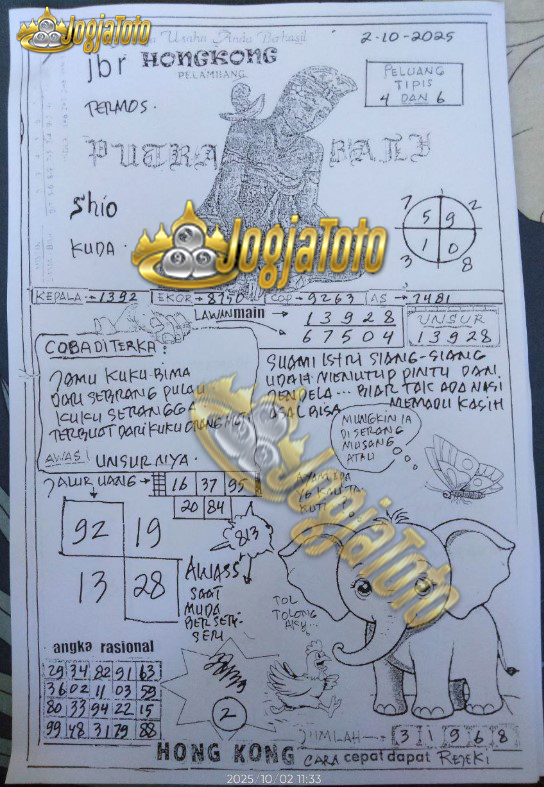 JogjaToto
Usaha Anda Berhasil
2-10-2025
jbr HONGKONG
PELAMJIANG
PELUANG
TIPIS
4 DAN 6
TERMOS.
PUTRA BALI
Shio
KUDA.
7 2
5 9
1 0
3 8
JogjaToto
KEPALA → 1392
EKOR → 8750
COP → 9263
AS → 7481
LAWAN main → 13928
67504
UNSUR
13928
COBA DI TERKA:
JAMU KUKU-BIMA
DARI SEBRANG PULAU
KUKU SERANGGA
TERBUAT DARI KUKU
AWAS! UNSURNYA.
SUAMI ISTRI SIANG-SIANG
UDAH MENUTUP PINTU DAN
JENDELA... BIAR TAK ADA NASI
ASAL BISA MEMADU KASIH
MUNGKIN IA
DI SERANG
MUSANG
ATAU
JALUR UANG →
16 37 95
20 84
JogjaToto
92 19
13 28
813
AWASS
SAAT
MUDA
BERSERI-
SERI
TOL
TOLONG
AKU..
angka rasional
29 34 82 91 63
36 02 11 03 59
80 33 94 22 15
99 48 31 79 88
2
JUMLAH → 3 1 9 6 8
HONG KONG CARA cepat dapat REJEKI
2025/10/02 11:33